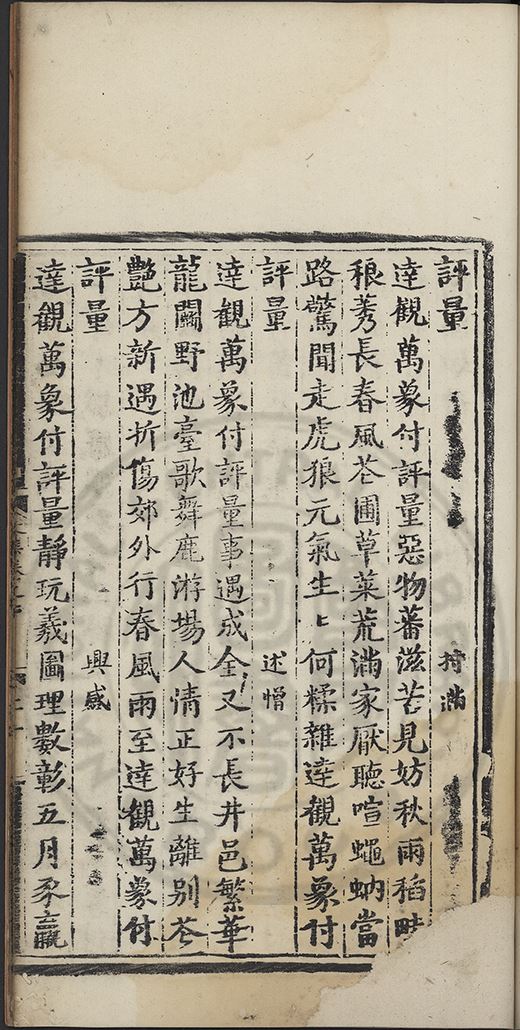 評量　持滿
達觀萬象付評量惡物蕃滋苦見妨秋雨稻畦
稂莠長春風花圃草菜荒滿家厭聽喧蠅蚋當
路驚聞走虎狼元氣生〻何糅雜達觀萬象付
評量　述憎
達觀萬象付評量事遇成全又不長井邑繁華
龍鬭野池臺歌舞鹿游場人情正好生離別花
艷方新遇折傷郊外行春風雨至達觀萬象付
評量　興感
達觀萬象付評量靜玩羲圖理數彰五月豕羸